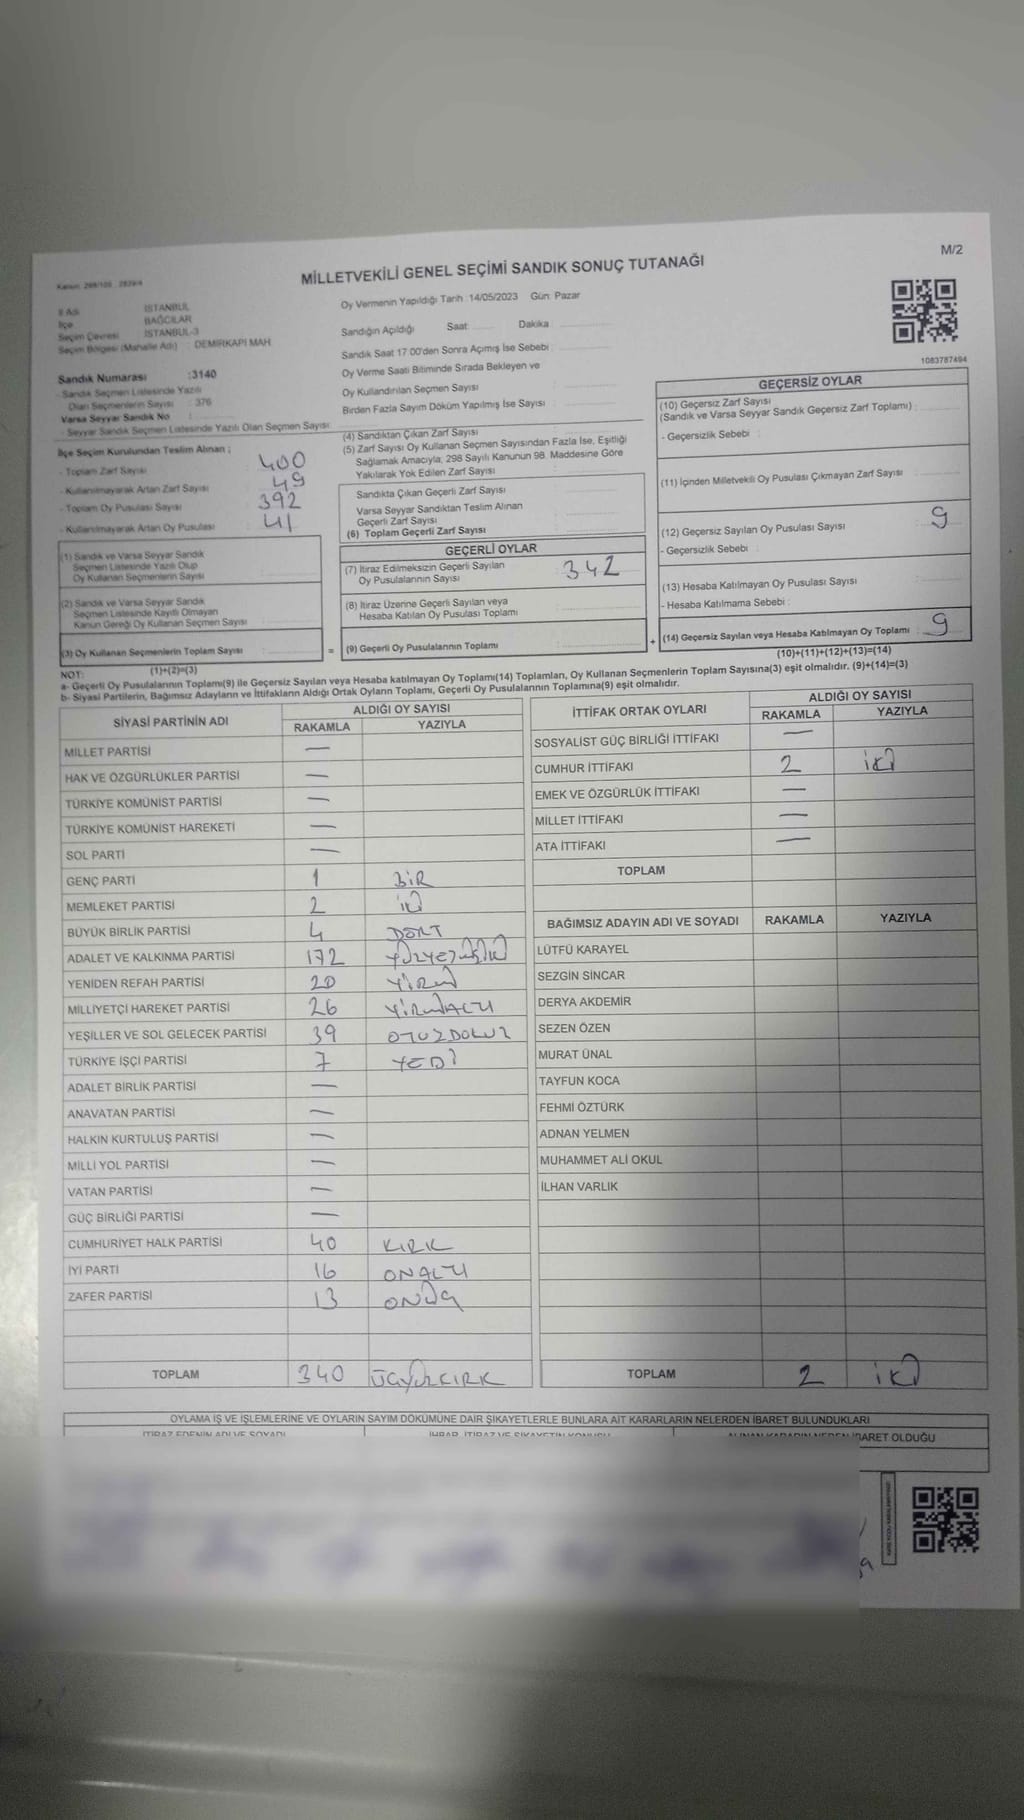 MİLLETVEKİLİ GENEL SEÇİMİ SANDIK SONUÇ TUTANAĞI
M/2
İl Adı İSTANBUL
İlçe BAĞCILAR
Seçim Çevresi İSTANBUL-3
Seçim Bölgesi (Mahalle Adı) : DEMİRKAPI MAH.
Sandık Numarası :3140
- Sandık Seçmen Listesinde Yazılı
Olan Seçmenlerin Sayısı : 376
Varsa Seyyar Sandık No :
- Seyyar Sandık Seçmen Listesinde Yazılı Olan Seçmen Sayısı:
Oy Vermenin Yapıldığı Tarih :14/05/2023 Gün: Pazar
Sandığın Açıldığı Saat: Dakika :
Sandık Saat 17:00'den Sonra Açımış İse Sebebi :
Oy Verme Saati Bitiminde Sırada Bekleyen ve
Oy Kullandırılan Seçmen Sayısı :
Birden Fazla Sayım Döküm Yapılmış İse Sayısı :
1083787494
İlçe Seçim Kurulundan Teslim Alınan ;
- Toplam Zarf Sayısı 400
- Kullanılmayarak Artan Zarf Sayısı 49
- Toplam Oy Pusulası Sayısı 392
- Kullanılmayarak Artan Oy Pusulası 41
(1) Sandık ve Varsa Seyyar Sandık
Seçmen Listesinde Yazılı Olup
Oy Kullanan Seçmenlerin Sayısı :
(2) Sandık ve Varsa Seyyar Sandık
Seçmen Listesinde Kayıtlı Olmayan
Kanun Gereği Oy Kullanan Seçmen Sayısı :
(3) Oy Kullanan Seçmenlerin Toplam Sayısı :
(4) Sandıktan Çıkan Zarf Sayısı :
(5) Zarf Sayısı Oy Kullanan Seçmen Sayısından Fazla İse, Eşitliği
Sağlamak Amacıyla, 298 Sayılı Kanunun 98. Maddesine Göre
Yakılarak Yok Edilen Zarf Sayısı :
Sandıkta Çıkan Geçerli Zarf Sayısı :
Varsa Seyyar Sandıktan Teslim Alınan
Geçerli Zarf Sayısı :
(6) Toplam Geçerli Zarf Sayısı :
GEÇERLİ OYLAR
(7) İtiraz Edilmeksizin Geçerli Sayılan
Oy Pusulalarının Sayısı : 342
(8) İtiraz Üzerine Geçerli Sayılan veya
Hesaba Katılan Oy Pusulası Toplamı :
= (9) Geçerli Oy Pusulalarının Toplamı :
GEÇERSİZ OYLAR
(10) Geçersiz Zarf Sayısı
(Sandık ve Varsa Seyyar Sandık Geçersiz Zarf Toplamı) :
- Geçersizlik Sebebi :
(11) İçinden Milletvekili Oy Pusulası Çıkmayan Zarf Sayısı :
(12) Geçersiz Sayılan Oy Pusulası Sayısı : 9
- Geçersizlik Sebebi :
(13) Hesaba Katılmayan Oy Pusulası Sayısı :
- Hesaba Katılmama Sebebi :
+ (14) Geçersiz Sayılan veya Hesaba Katılmayan Oy Toplamı : 9
NOT: (1)+(2)=(3) (10)+(11)+(12)+(13)=(14)
a- Geçerli Oy Pusulalarının Toplamı(9) ile Geçersiz Sayılan veya Hesaba katılmayan Oy Toplamı(14) Toplamları, Oy Kullanan Seçmenlerin Toplam Sayısına(3) eşit olmalıdır. (9)+(14)=(3)
b- Siyasi Partilerin, Bağımsız Adayların ve İttifakların Aldığı Ortak Oyların Toplamı, Geçerli Oy Pusulalarının Toplamına(9) eşit olmalıdır.
SİYASİ PARTİNİN ADI ALDIĞI OY SAYISI
RAKAMLA YAZIYLA
MİLLET PARTİSİ —
HAK VE ÖZGÜRLÜKLER PARTİSİ —
TÜRKİYE KOMÜNİST PARTİSİ —
TÜRKİYE KOMÜNİST HAREKETİ —
SOL PARTİ —
GENÇ PARTİ 1 BİR
MEMLEKET PARTİSİ 2 iki
BÜYÜK BİRLİK PARTİSİ 4 DÖRT
ADALET VE KALKINMA PARTİSİ 172
YENİDEN REFAH PARTİSİ 20
MİLLİYETÇİ HAREKET PARTİSİ 26 YİRMİALTI
YEŞİLLER VE SOL GELECEK PARTİSİ 39 OTUZDOKUZ
TÜRKİYE İŞÇİ PARTİSİ 7 YEDİ
ADALET BİRLİK PARTİSİ —
ANAVATAN PARTİSİ —
HALKIN KURTULUŞ PARTİSİ —
MİLLİ YOL PARTİSİ —
VATAN PARTİSİ —
GÜÇ BİRLİĞİ PARTİSİ —
CUMHURİYET HALK PARTİSİ 40 KIRK
İYİ PARTİ 16 ONALTI
ZAFER PARTİSİ 13 ONÜÇ
TOPLAM 340 ÜÇYÜZKIRK
İTTİFAK ORTAK OYLARI ALDIĞI OY SAYISI
RAKAMLA YAZIYLA
SOSYALİST GÜÇ BİRLİĞİ İTTİFAKI —
CUMHUR İTTİFAKI 2 iki
EMEK VE ÖZGÜRLÜK İTTİFAKI —
MİLLET İTTİFAKI —
ATA İTTİFAKI —
TOPLAM
BAĞIMSIZ ADAYIN ADI VE SOYADI RAKAMLA YAZIYLA
LÜTFÜ KARAYEL
SEZGİN SİNCAR
DERYA AKDEMİR
SEZEN ÖZEN
MURAT ÜNAL
TAYFUN KOCA
FEHMİ ÖZTÜRK
ADNAN YELMEN
MUHAMMET ALİ OKUL
İLHAN VARLIK
TOPLAM 2 iki
OYLAMA İŞ VE İŞLEMLERİNE VE OYLARIN SAYIM DÖKÜMÜNE DAİR ŞİKAYETLERLE BUNLARA AİT KARARLARIN NELERDEN İBARET BULUNDUKLARI
İTİRAZ EDENİN ADI VE SOYADI İHBAR, İTİRAZ VE ŞİKAYETİN KONUSU ALINAN KARARIN NEDEN İBARET OLDUĞU